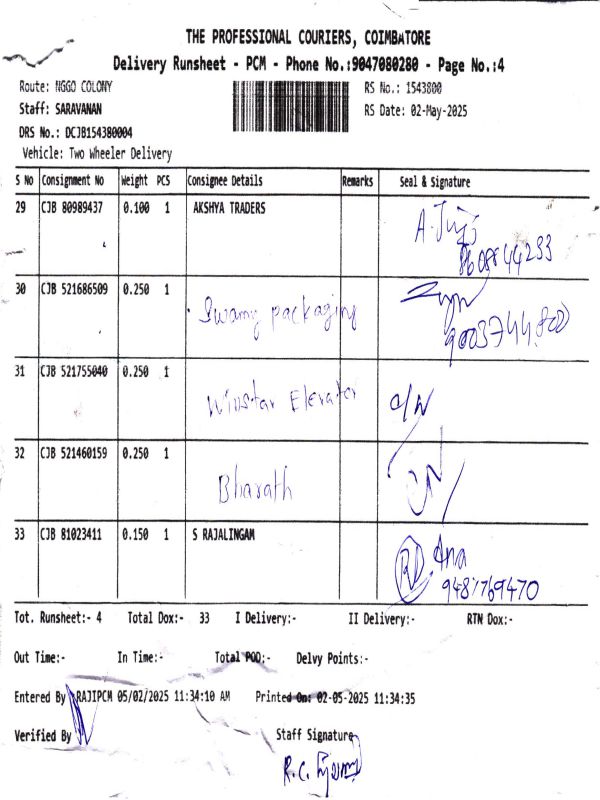 THE PROFESSIONAL COURIERS, COIMBATORE
Delivery Runsheet - PCM - Phone No.:9047080280 - Page No.:4
Route: NGGO COLONY RS No.: 1543800
Staff: SARAVANAN RS Date: 02-May-2025
DRS No.: DCJB154380004
Vehicle: Two Wheeler Delivery
S No Consignment No Weight PCS Consignee Details Remarks Seal & Signature
29 CJB 80989437 0.100 1 AKSHYA TRADERS
30 CJB 521686509 0.250 1 Swamy packaging
31 CJB 521755040 0.250 1 Winstar Elevator
32 CJB 521460159 0.250 1 Bharath
33 CJB 81023411 0.150 1 S RAJALINGAM
9487769470
Tot. Runsheet:- 4 Total Dox:- 33 I Delivery:- II Delivery:- RTN Dox:-
Out Time:- In Time:- Total POD:- Delvy Points:-
Entered By RAJIPCM 05/02/2025 11:34:10 AM Printed On: 02-05-2025 11:34:35
Verified By Staff Signature
R.C.